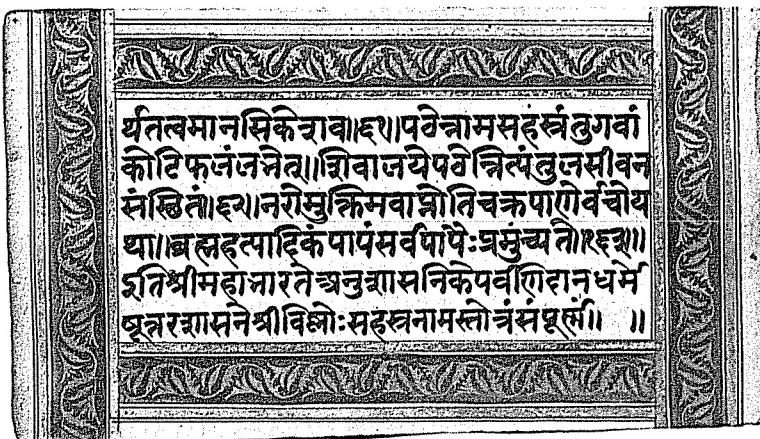 र्यतत्वमानसिकेऽव॥६१॥पठेन्नामसहस्रंतुगवां
कोटिफलंलभेत्॥शिवालयेपठेन्नित्यंतुलसीवन
संस्छितं॥६२॥नरोमुक्तिमवाप्नोतिचक्रपाणेर्वचोय
था॥ब्रह्महत्यादिकंपापंसर्वपापैःप्रमुच्यते॥१६३॥
इतिश्रीमहाभारतेअनुशासनिकेपर्वणिदानधर्म
षूत्तरशासनेश्रीविष्णोःसहस्रनामस्तोत्रंसंपूर्णं॥ ॥